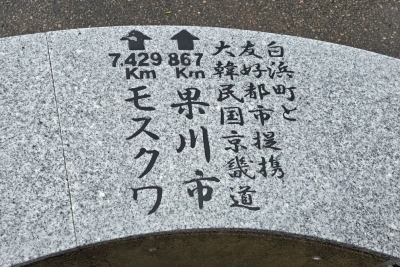 白浜町と
友好都市提携
大韓民国京畿道
果川市
867
Km
モスクワ
7.429
Km